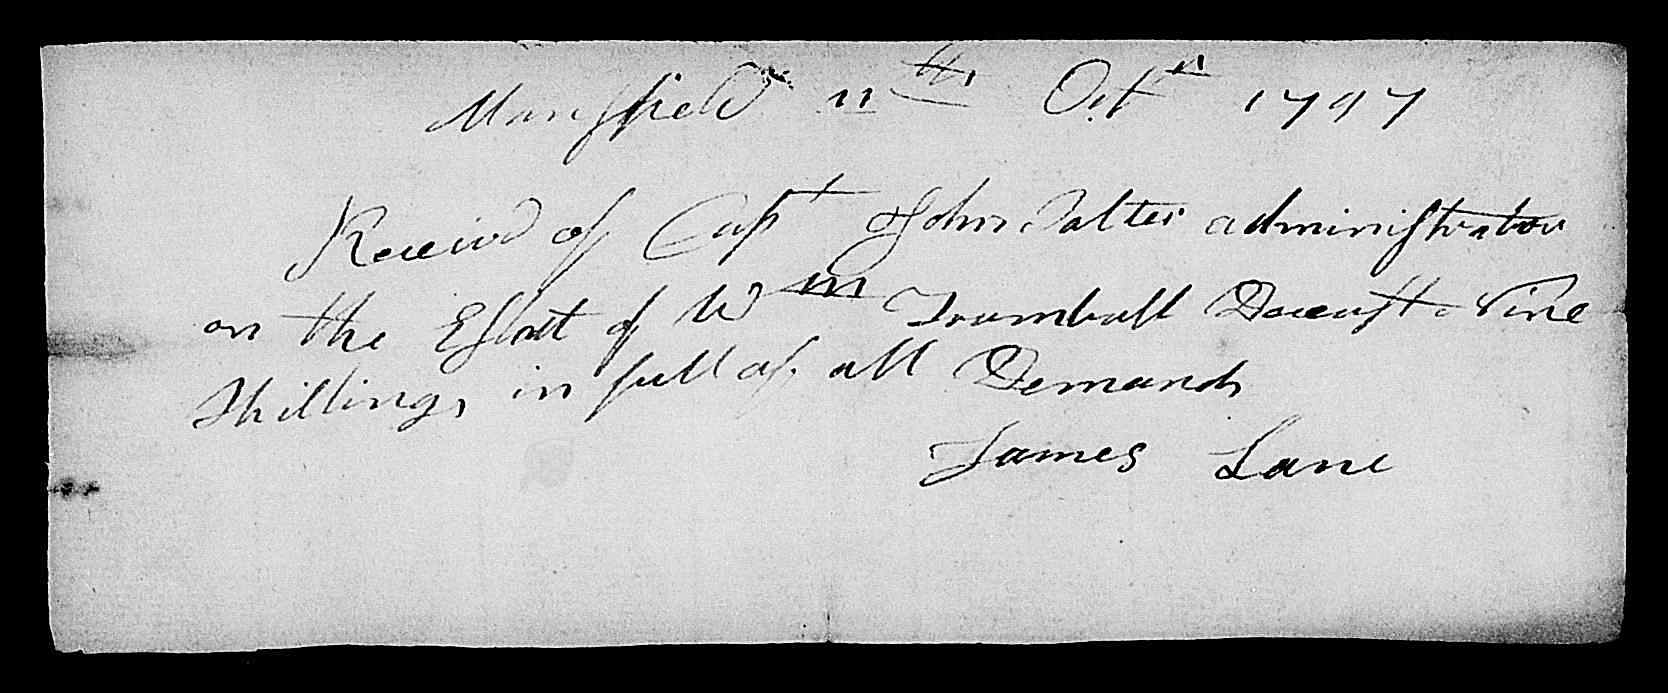 Mansfield 11th Octr 1797
Receivd of Capt John Salter administrator
on the Estat of Wm Trumbull Deceast Nine
Shillings in full of all Demands
James Lane